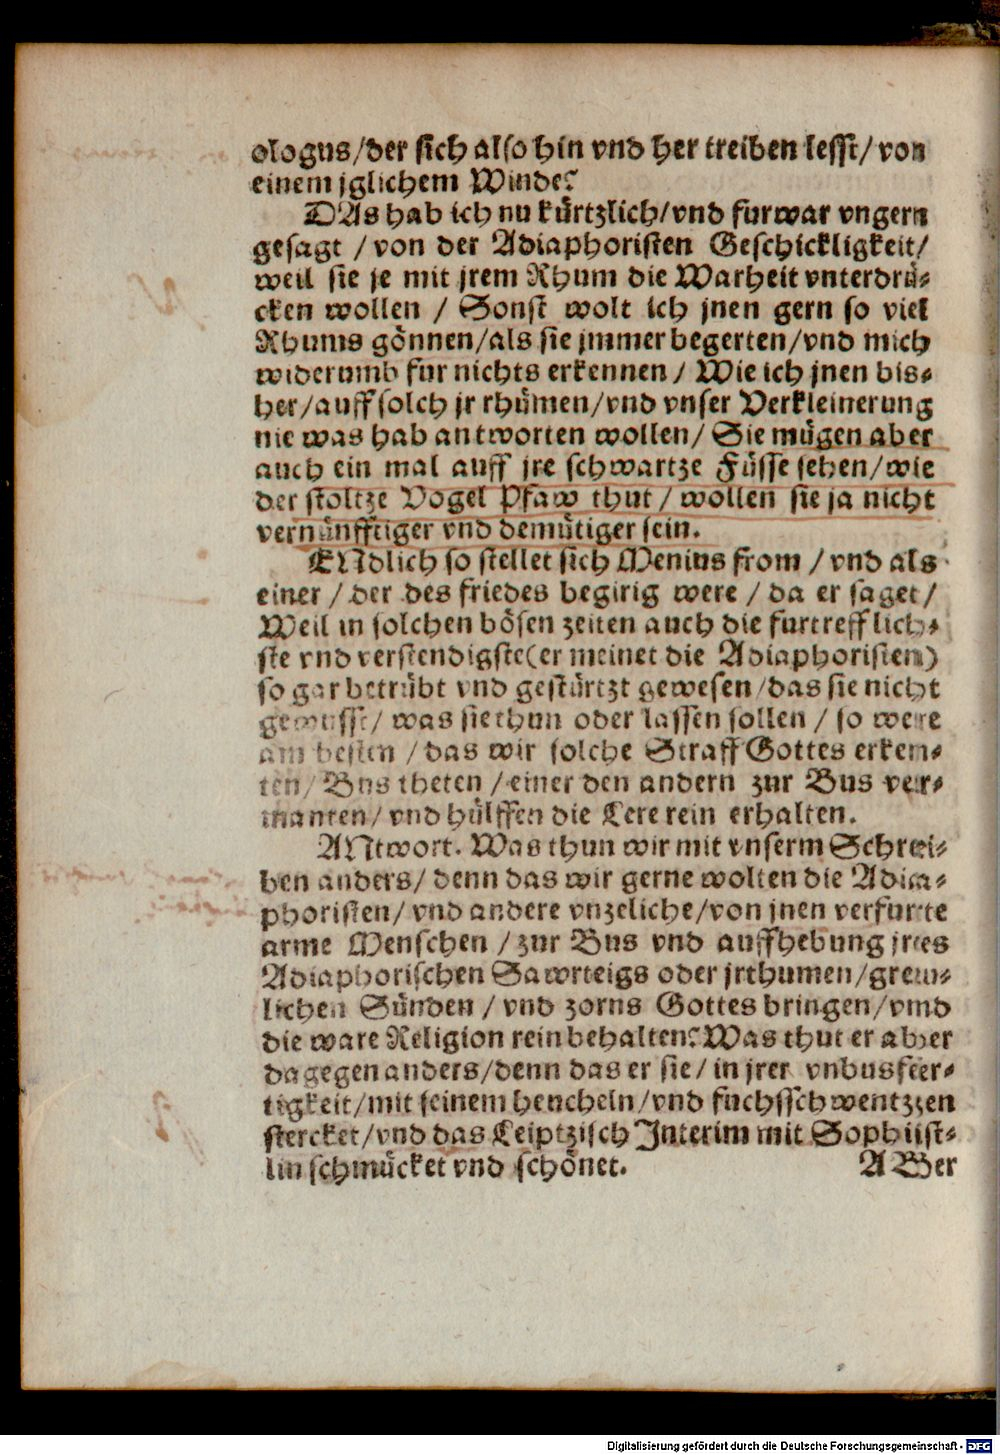 ologus/der sich also hin vnd her treiben lesst/ von
einem jglichem Winde?
DAs hab ich nu kürtzlich/vnd furwar vngern
gesagt / von der Adiaphoristen Geschickligkeit/
weil sie je mit jrem Rhum die Warheit vnterdrü-
cken wollen / Sonst wolt ich jnen gern so viel
Rhums gönnen/als sie jmmer begerten/vnd mich
widerumb fur nichts erkennen / Wie ich jnen bis-
her/auff solch jr rhümen/vnd vnser Verkleinerung
nie was hab antworten wollen/ Sie mügen aber
auch ein mal auff jre schwartze Füsse sehen/wie
der stoltze Vogel Pfaw thut / wollen sie ja nicht
vernünfftiger vnd demütiger sein.
ENdlich so stellet sich Menius from / vnd als
einer / der des friedes begirig were / da er saget/
Weil in solchen bösen zeiten auch die furtrefflich-
ste vnd verstendigste(er meinet die Adiaphoristen)
so gar betrübt vnd gestürtzt gewesen/das sie nicht
gewusst/ was sie thun oder lassen sollen / so were
am besten / das wir solche Straff Gottes erken-
ten/ Bus theten / einer den andern zur Bus ver-
manten/ vnd hülffen die Lere rein erhalten.
ANtwort. Was thun wir mit vnserm Schrei-
ben anders/ denn das wir gerne wolten die Adia-
phoristen/ vnd andere vnzeliche/von jnen verfurte
arme Menschen / zur Bus vnd auffhebung jres
Adiaphorischen Sawrteigs oder jrthumen/grew-
lichen Sünden / vnd zorns Gottes bringen/vnd
die ware Religion rein behalten? Was thut er aber
dagegen anders/denn das er sie/ in jrer vnbusfer-
tigkeit/mit seinem heucheln/vnd fuchsschwentzen
stercket/vnd das Leiptzisch Interim mit Sophist-
lin schmücket vnd schönet.
ABer
Digitalisierung gefördert durch die Deutsche Forschungsgemeinschaft - DFG